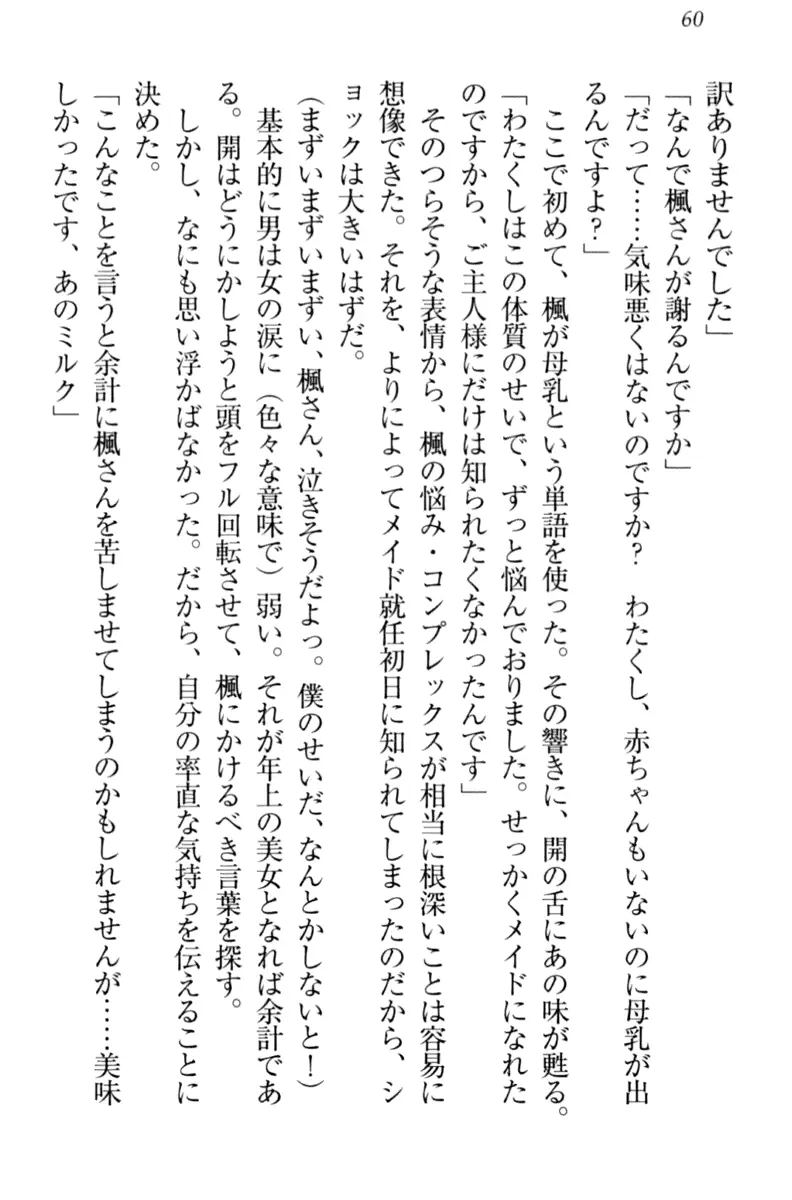 60
訳ありませんでした」
「なんで楓さんが謝るんですか」
「だって……気味悪くはないのですか？　わたくし、赤ちゃんもいないのに母乳が出
るんですよ？」
　ここで初めて、楓が母乳という単語を使った。その響きに、開の舌にあの味が甦る。
「わたくしはこの体質のせいで、ずっと悩んでおりました。せっかくメイドになれた
のですから、ご主人様にだけは知られたくなかったんです」
　そのつらそうな表情から、楓の悩み・コンプレックスが相当に根深いことは容易に
想像できた。それを、よりによってメイド就任初日に知られてしまったのだから、シ
ョックは大きいはずだ。
（まずいまずいまずい、楓さん、泣きそうだよっ。僕のせいだ、なんとかしないと！）
　基本的に男は女の涙に（色々な意味で）弱い。それが年上の美女となれば余計であ
る。開はどうにかしようと頭をフル回転させて、楓にかけるべき言葉を探す。
　しかし、なにも思い浮かばなかった。だから、自分の率直な気持ちを伝えることに
決めた。
「こんなことを言うと余計に楓さんを苦しませてしまうのかもしれませんが……美味
しかったです、あのミルク」